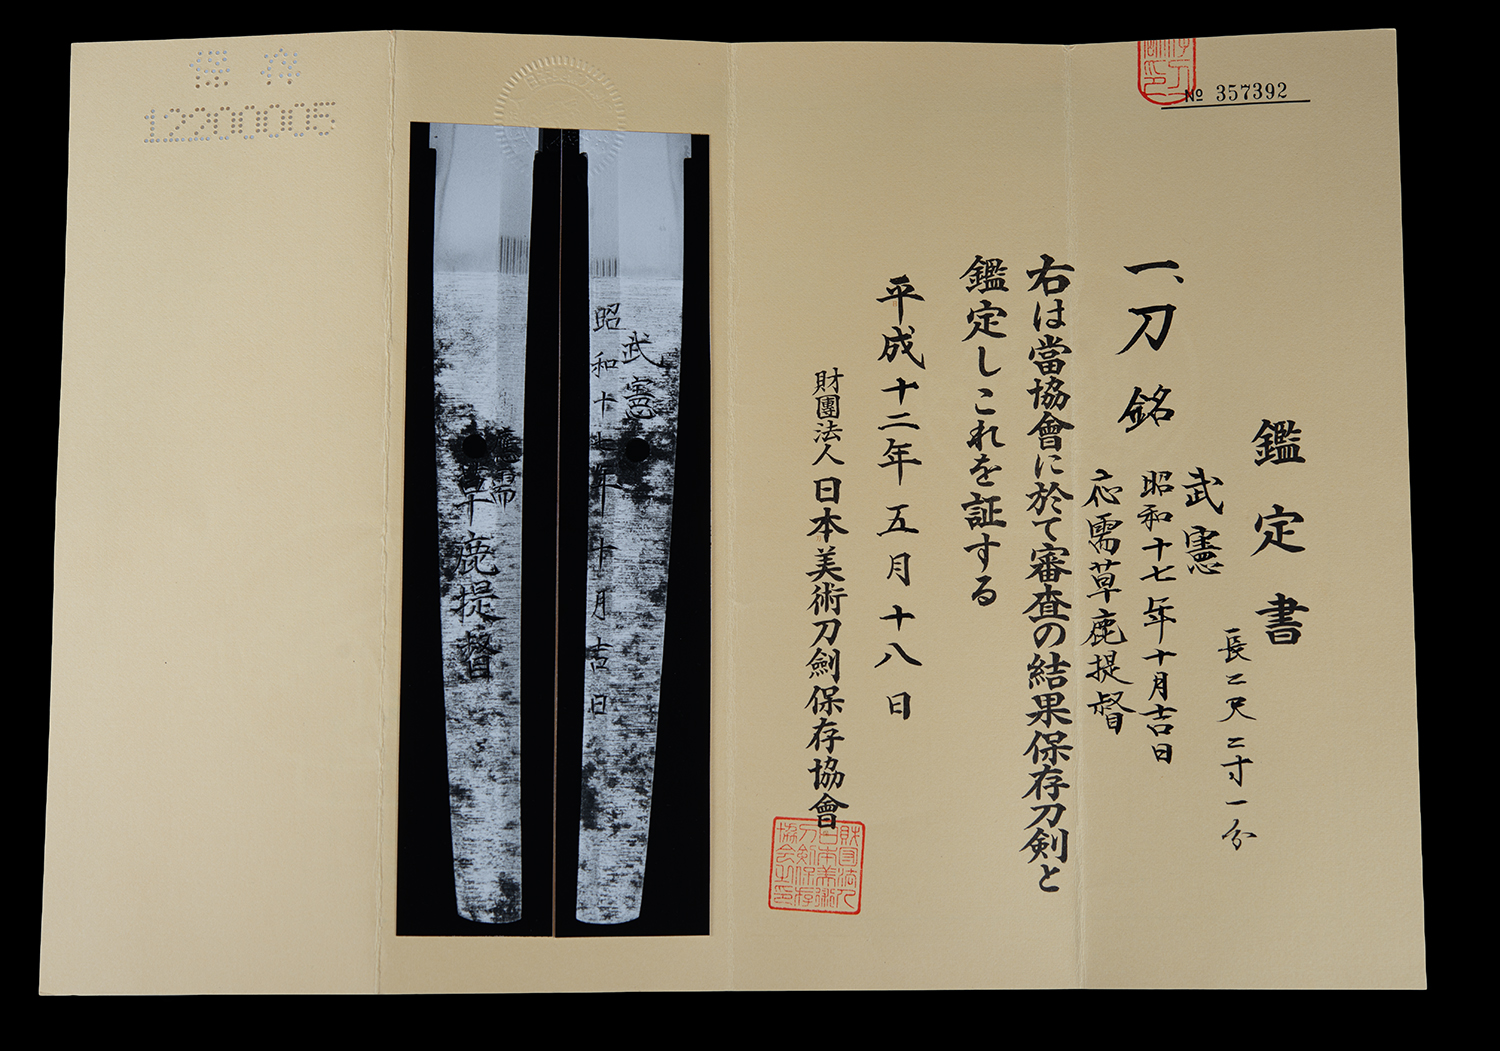 № 357392
鑑定書
一、刀 銘
長二尺二寸一分
武憲
昭和十七年十月吉日
応需草鹿提督
右は當協會に於て審査の結果保存刀剣と
鑑定しこれを証する
平成十二年五月十八日
財團法人日本美術刀劍保存協會
武憲
昭和十七年十月吉日
應需
草鹿提督
保存
12200005